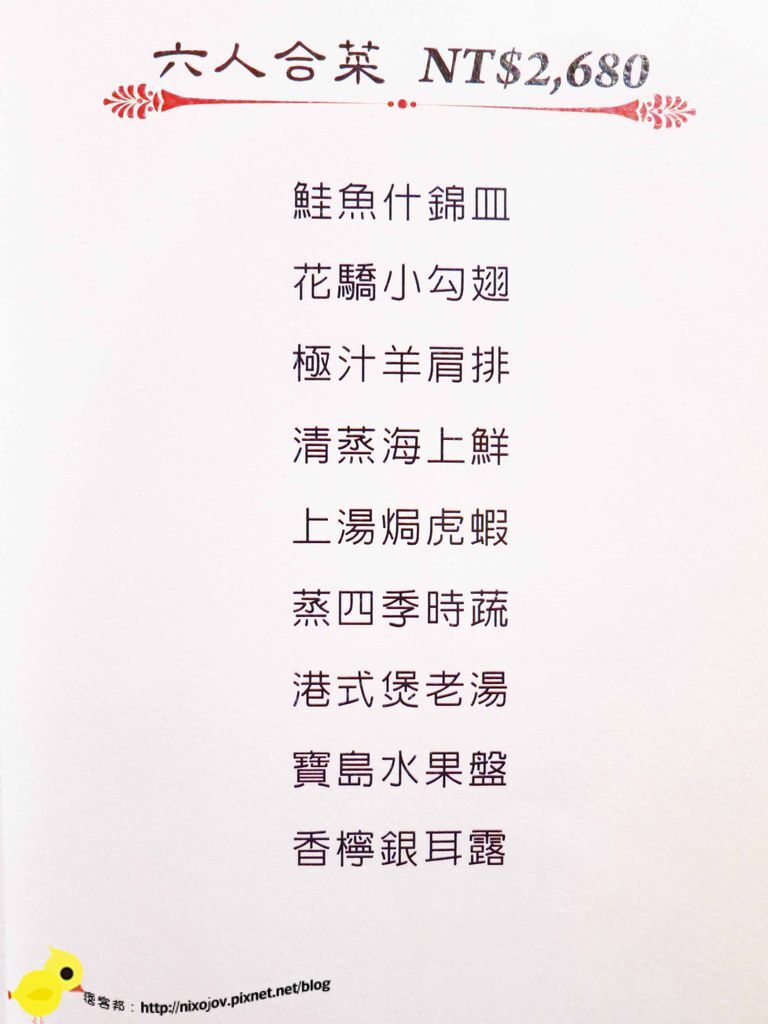 六人合菜 NT$2,680
鮭魚什錦皿
花驕小勾翅
極汁羊肩排
清蒸海上鮮
上湯焗虎蝦
蒸四季時蔬
港式煲老湯
寶島水果盤
香檸銀耳露
痞客邦：http://nixojov.pixnet.net/blog